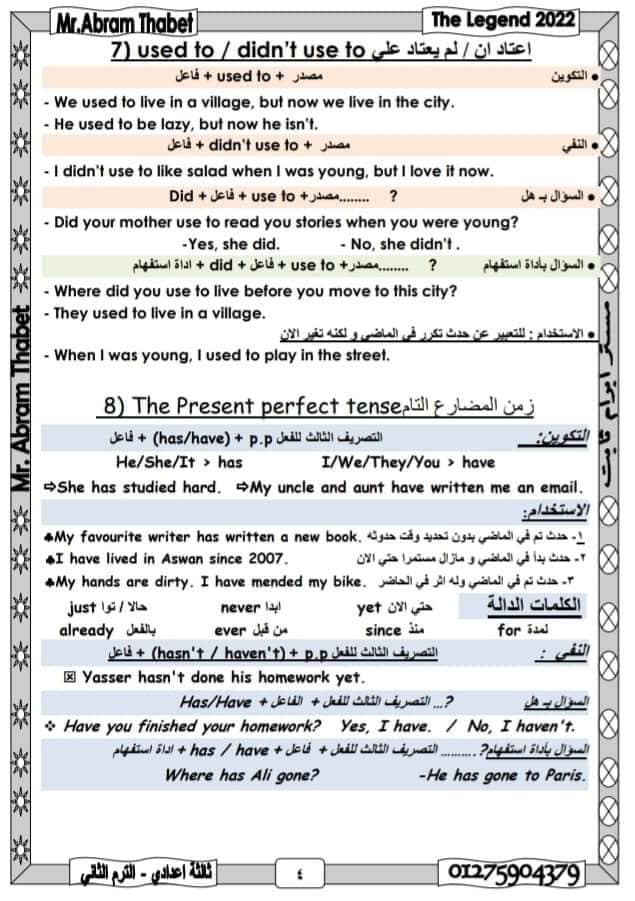 Mr.Abram Thabet
The Legend 2022
7) used to / didn't use to اعتاد ان / لم يعتاد علي
• التكوين فاعل + used to + مصدر
- We used to live in a village, but now we live in the city.
- He used to be lazy, but now he isn't.
• النفي فاعل + didn't use to + مصدر
- I didn't use to like salad when I was young, but I love it now.
• السؤال بـ هل Did + فاعل + use to +مصدر........ ?
- Did your mother use to read you stories when you were young?
-Yes, she did. - No, she didn't .
• السؤال بأداة استفهام اداة استفهام + did + فاعل + use to +مصدر........ ?
- Where did you use to live before you move to this city?
- They used to live in a village.
• الاستخدام : للتعبير عن حدث تكرر في الماضي و لكنه تغير الان
- When I was young, I used to play in the street.
8) The Present perfect tense زمن المضارع التام
التكوين: فاعل + (has/have) + p.p التصريف الثالث للفعل
He/She/It > has I/We/They/You > have
⇨She has studied hard. ⇨My uncle and aunt have written me an email.
الاستخدام:
♣My favourite writer has written a new book. ١- حدث تم في الماضي بدون تحديد وقت حدوثه
♣I have lived in Aswan since 2007. ٢- حدث بدأ في الماضي و مازال مستمرا حتي الان
♣My hands are dirty. I have mended my bike. ٣- حدث تم في الماضي وله اثر في الحاضر
الكلمات الدالة yet حتي الان never ابدا just حالا / توا
for لمدة since منذ ever من قبل already بالفعل
النفي : فاعل + (hasn't / haven't) + p.p التصريف الثالث للفعل
☒ Yasser hasn't done his homework yet.
السؤال بـ هل Has/Have + الفاعل + التصريف الثالث للفعل ...?
❖ Have you finished your homework? Yes, I have. / No, I haven't.
السؤال بأداة استفهام اداة استفهام + has / have + فاعل + التصريف الثالث للفعل ..........?
Where has Ali gone? -He has gone to Paris.
Mr. Abram Thabet
مستر ابرام ثابت
ثالثة اعدادي - الترم الثاني
٤
01275904379